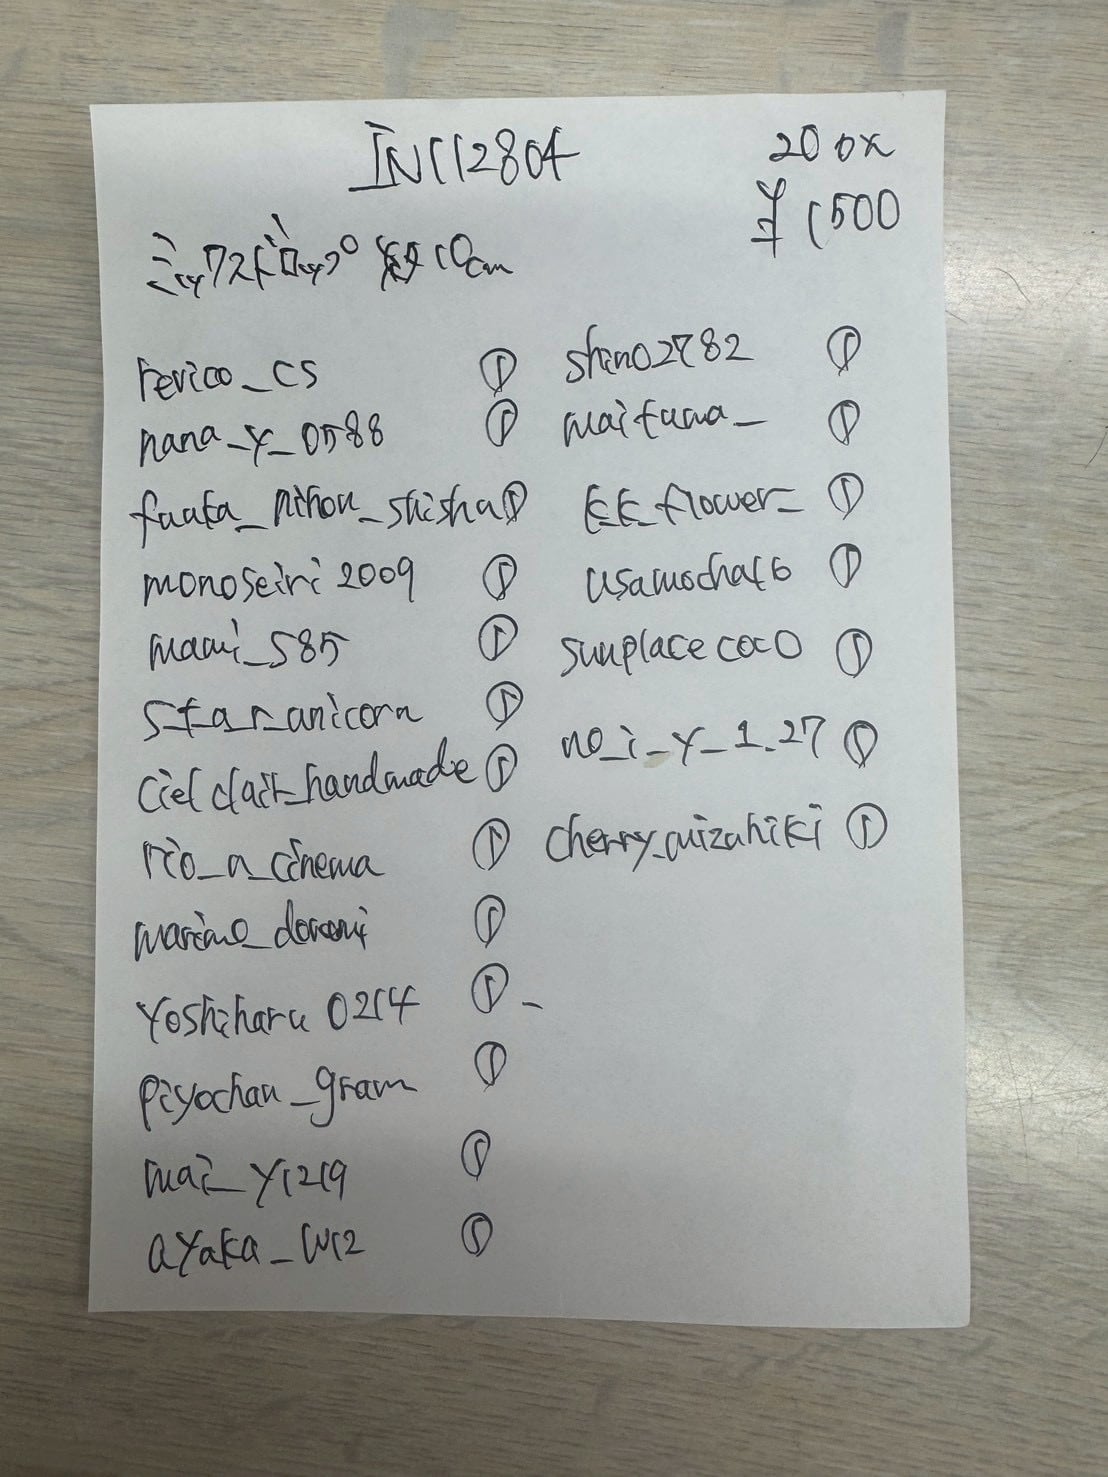 INC12804
200x
¥1500
ミックスドロップ 約10cm
revico_cs ①
nana_y_0588 ①
fuuka_nihon_shisha ①
monoseiri2009 ①
mami_585 ①
star_anicorn ①
cielclair_handmade ①
rio_a_cinema ①
marimo_doremi ①
yoshiharu0214 ① -
piyochan_gram ①
mai_y1219 ①
ayaka_w12 ①
shino2782 ①
maifuwa_ ①
kk_flower_ ①
usamochaf6 ①
sunplacecoco ①
no_i_y_1.27 ①
cherry_mizuhiki ①